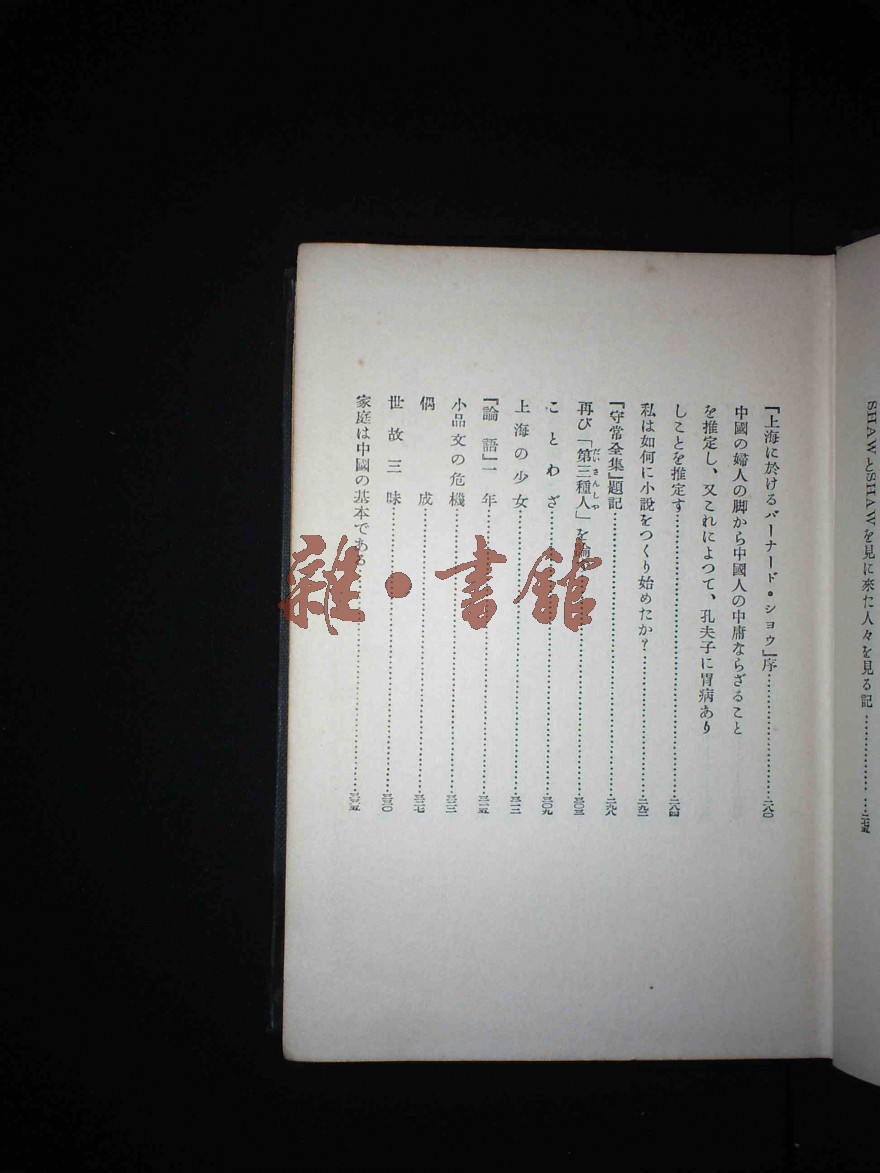 SHAWとSHAWを見に來た人々を見る記……………二七五
『上海に於けるバーナード・ショウ』序……………二八〇
中國の婦人の脚から中國人の中庸ならざること
を推定し、又これによつて、孔夫子に胃病あり
しことを推定す……………二八四
私は如何に小說をつくり始めたか？……………二九二
『守常全集』題記……………二九八
再び「第三種人」を論
だいさんしゆ
ことわざ……………三〇九
上海の少女……………三一二
『論語』一年……………三一五
小品文の危機……………三二三
偶成……………三二七
世故三昧……………三三〇
家庭は中國の基本である……………三三五
雜・書館